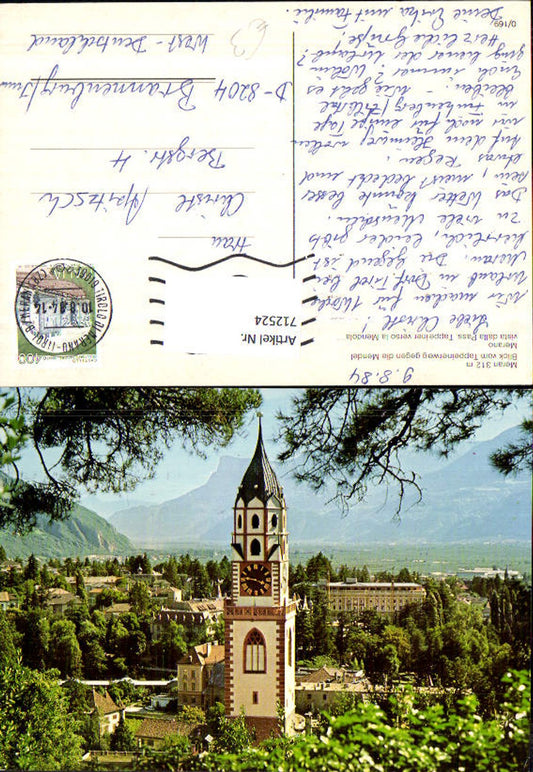 Meran 312 m
Blick vom Tappeinerweg gegen die Mendel
Merano
vista dalla Pass. Tappeiner verso la Mendola
9.8.84
Liebe Christl!
Wir machen für 1 Woche
Urlaub in Dorf Tirol bei
Meran. Die Gegend ist
herrlich, leider gibts
zu viele Menschen.
Das Wetter könnte besser
sein, meist bedeckt und
etwas Regen.
Auf dem Heimweg wollen
wir noch für einige Tage
in
bleiben. – Wie geht es
Euch immer? Wohin
ging heuer der Urlaub?
Herzliche Grüße
Deine Erika mit Familie.
Frau
Christl
Bergstr. 4
D-8204 Brannenburg/Inn
West-Deutschland
Artikel Nr.
712524
39019 TIROLO DI MERANO-TIROL B. MERAN (BZ)
10.8.84-14
400
0/169
63